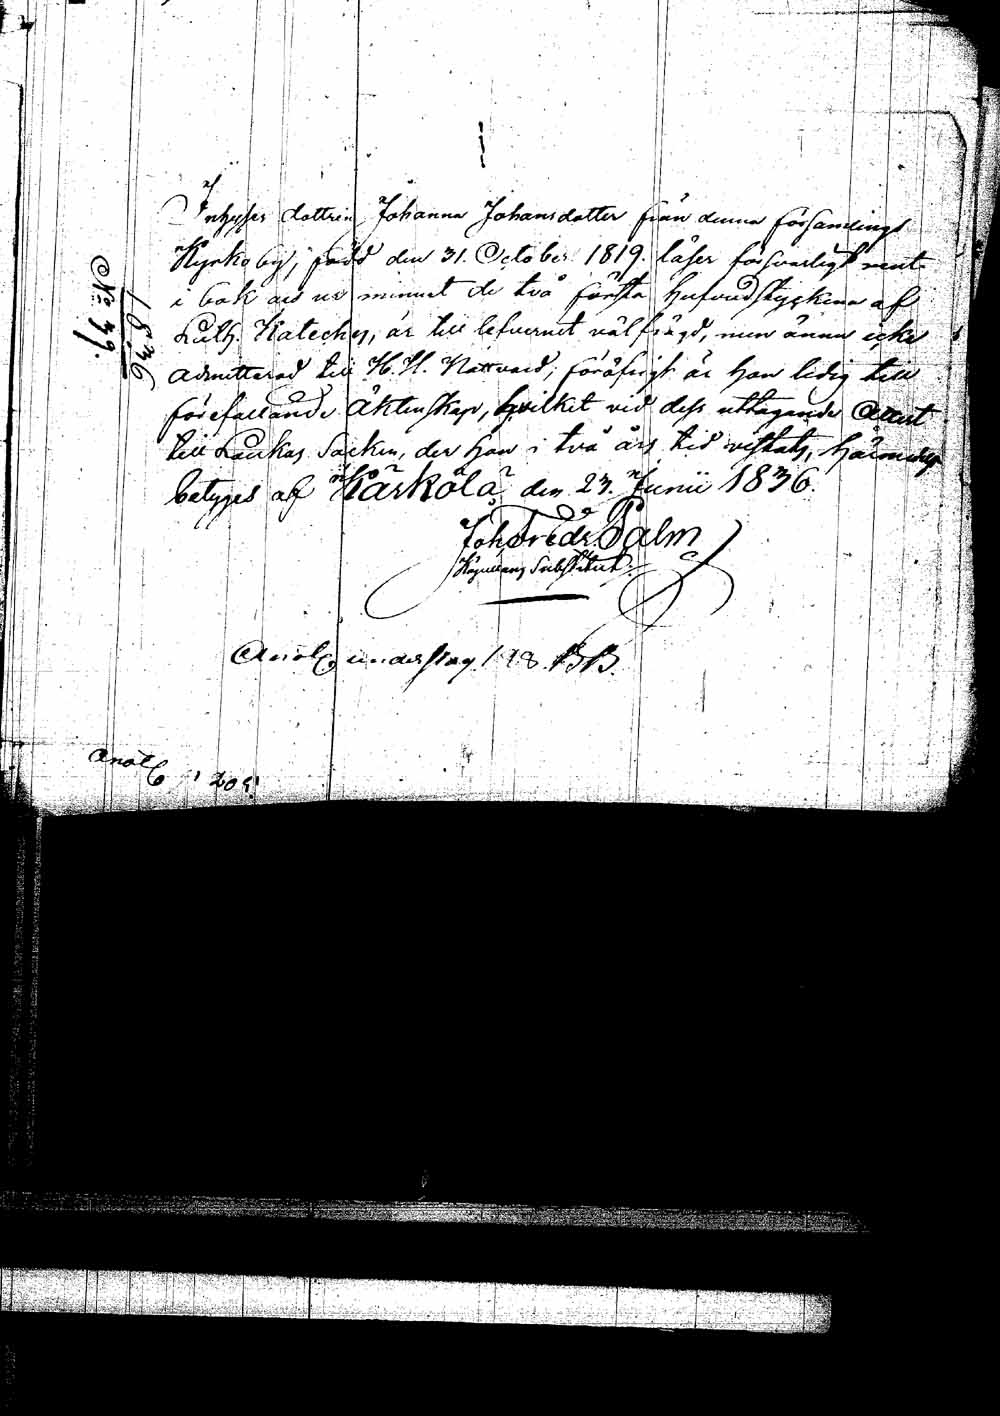 Inhyses dottren Johanna Johansdotter från denna församlings
Kyrkoby, född den 31. October 1819. läser försvarligt rent
i bok och ur minnet de två första hufvudstyckena af
Luth. Kateches, är till lefvernet välfrägd, men ännu icke
admitterad till H. H. Nattvard; föröfrigt är hon ledig till
förefallande äktenskap, hvilket vid dess uttagande Attest
till Laukas Socken, der hon i två års tid vistats, härmedelst
betyges af Kärkölä den 23. Junii 1836.
Joh. Fredr. Palm
Substitut.
1836
No. 39.
Anot. under pag. 198. BB.
Anot. 205.